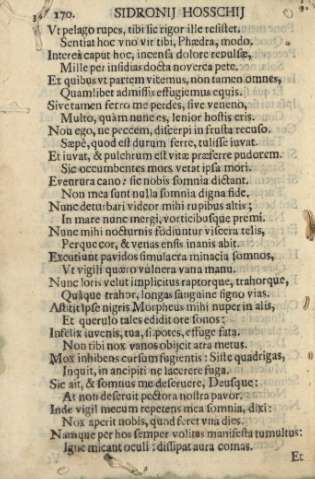 170. SIDRONIJ HOSSCHIJ
Vt pelago rupes, tibi sic rigor ille resistet.
Sentiat hoc vno vir tibi, Phædra, modo.
Intereà caput hoc, incensa dolore repulsæ,
Mille per insidias docta noverca pete.
Et quibus vt partem vitemus, non tamen omnes,
Quamlibet admissis effugiemus equis.
Sive tamen ferro me perdes, sive veneno,
Multo, quàm nunc es, lenior hostis eris.
Non ego, ne peccem, discerpi in frusta recuso.
Sæpè, quod est durum ferre, tulisse juvat.
Et juvat, & pulchrum est vitæ præferre pudorem.
Sic occumbentes mors vetat ipsa mori.
Eventura cano? sic nobis somnia dictant.
Non mea sunt nulla somnia digna fide.
Nunc deturbari videor mihi rupibus altis;
In mare nunc mergi, vorticibusque premi.
Nunc mihi nocturnis fodiuntur viscera telis,
Perque cor, & venas ensis inanis abit.
Excutiunt pavidos simulacra minacia somnos,
Vt vigili quæro vulnera vana manu.
Nunc loris velut implicitus raptorque, trahorque,
Quàque trahor, longas sanguine signo vias.
Astitit ipse nigris Morpheus mihi nuper in alis,
Et querulo tales edidit ore sonos:
Infelix juvenis, tua, si potes, effuge fata.
Non tibi nox vanos objicit atra metus.
Mox inhibens cursum fugienti: Siste quadrigas,
Inquit, in ancipiti ne lacerere fuga.
Sic ait, & somnus me deseruere, Deusque:
At non deseruit pectora nostra pavor.
Inde vigil mecum repetens mea somnia, dixi:
Nox aperit nobis, quod feret vna dies.
Namque per hos semper volitat manifesta tumultus:
Igne micant oculi: dissipat aura comas.
Et